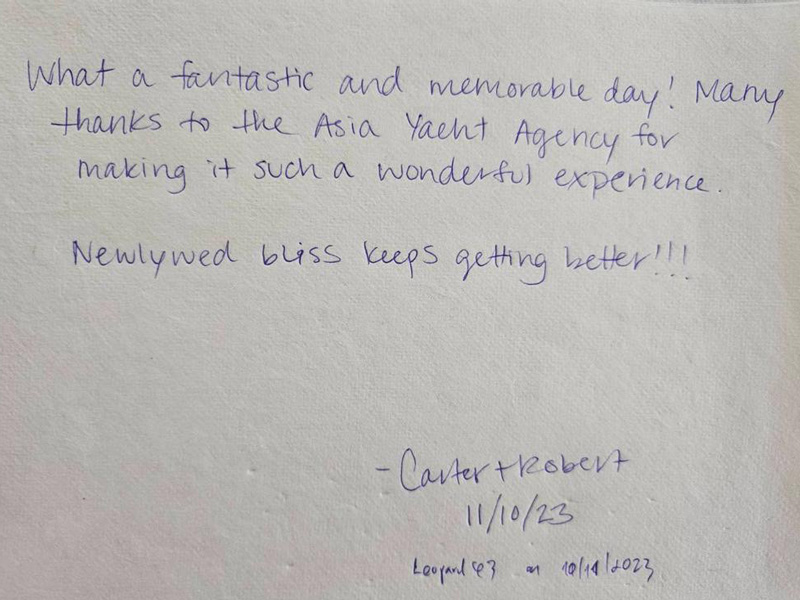 What a fantastic and memorable day! Many
thanks to the Asia Yacht Agency for
making it such a wonderful experience.
Newlywed bliss keeps getting better!!!
- Carter + Robert
11/10/23
Leopard 43 on